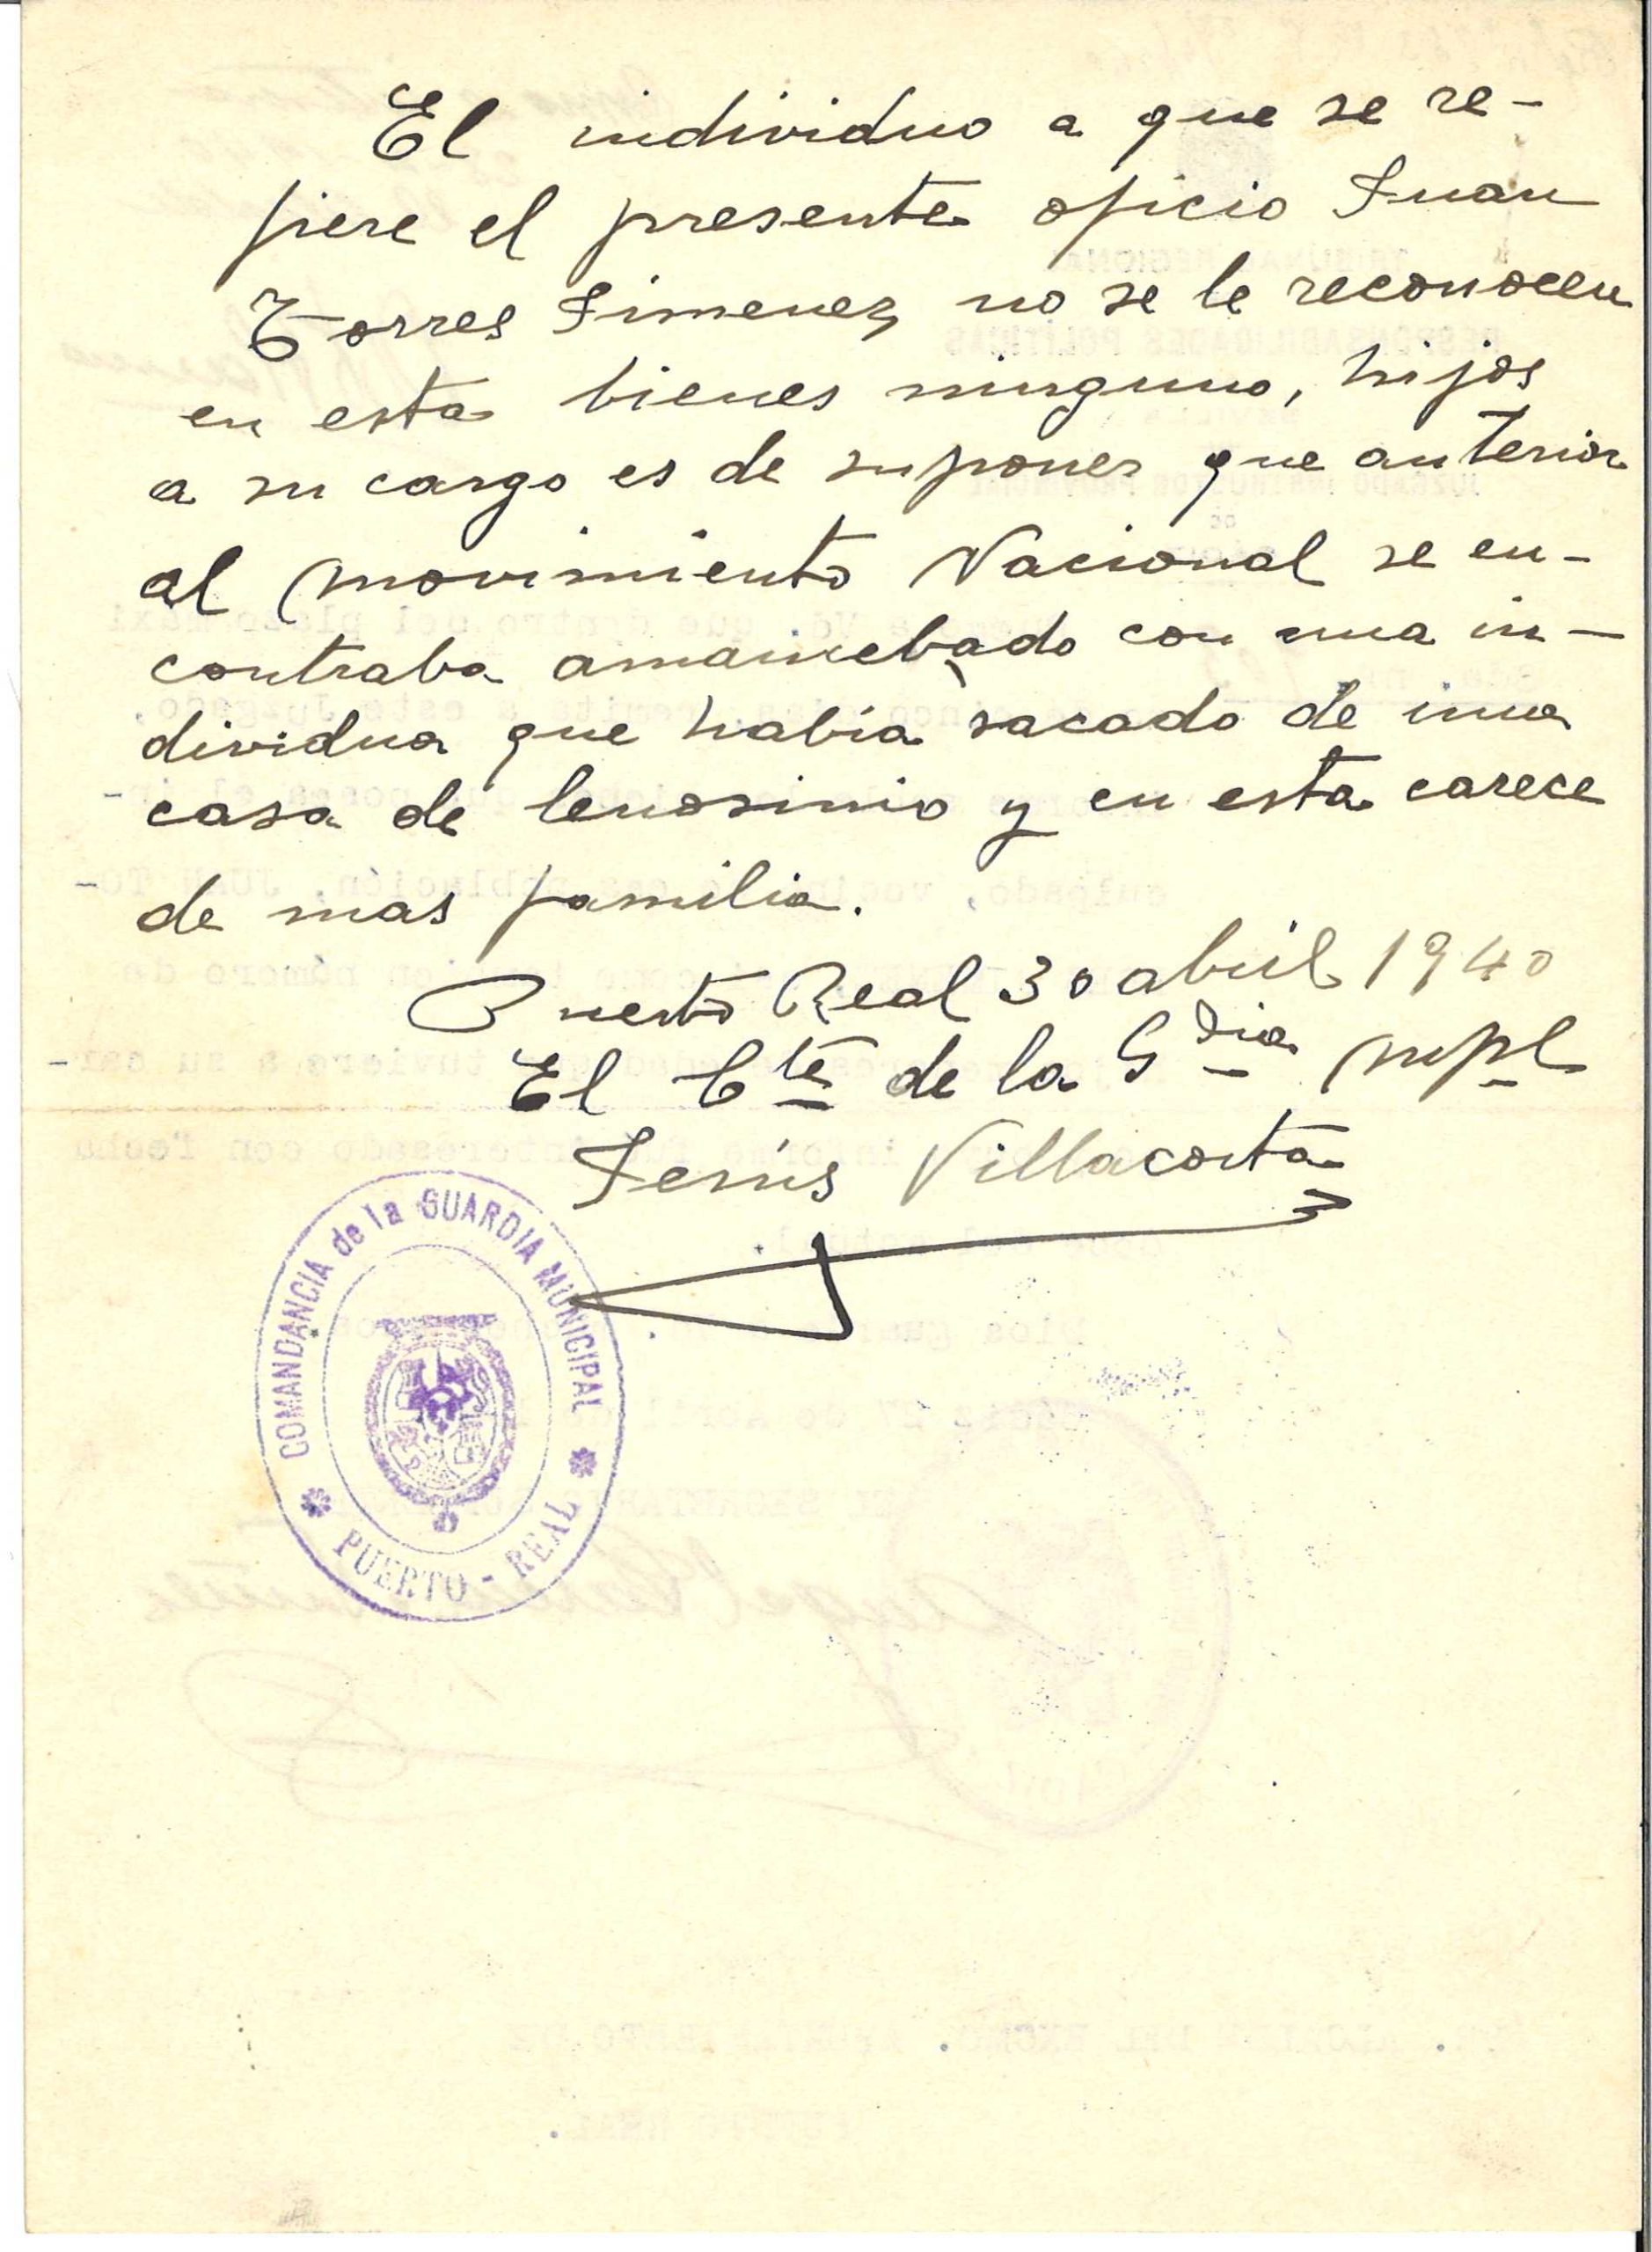 El individuo a que se re-
fiere el presente oficio Juan
Torres Jimenez, no se le reconocen
en esta bienes ninguno, hijos
a su cargo es de suponer que anterior
al movimiento Nacional se en-
contraba amancebado con una in-
dividua que había sacado de una
casa de lenosinio y en esta carece
de mas familia.
Puerto Real 30 abril 1940
El Cte de la Gdia mpl
Jesús Villacorta
COMANDANCIA de la GUARDIA MUNICIPAL
PUERTO - REAL